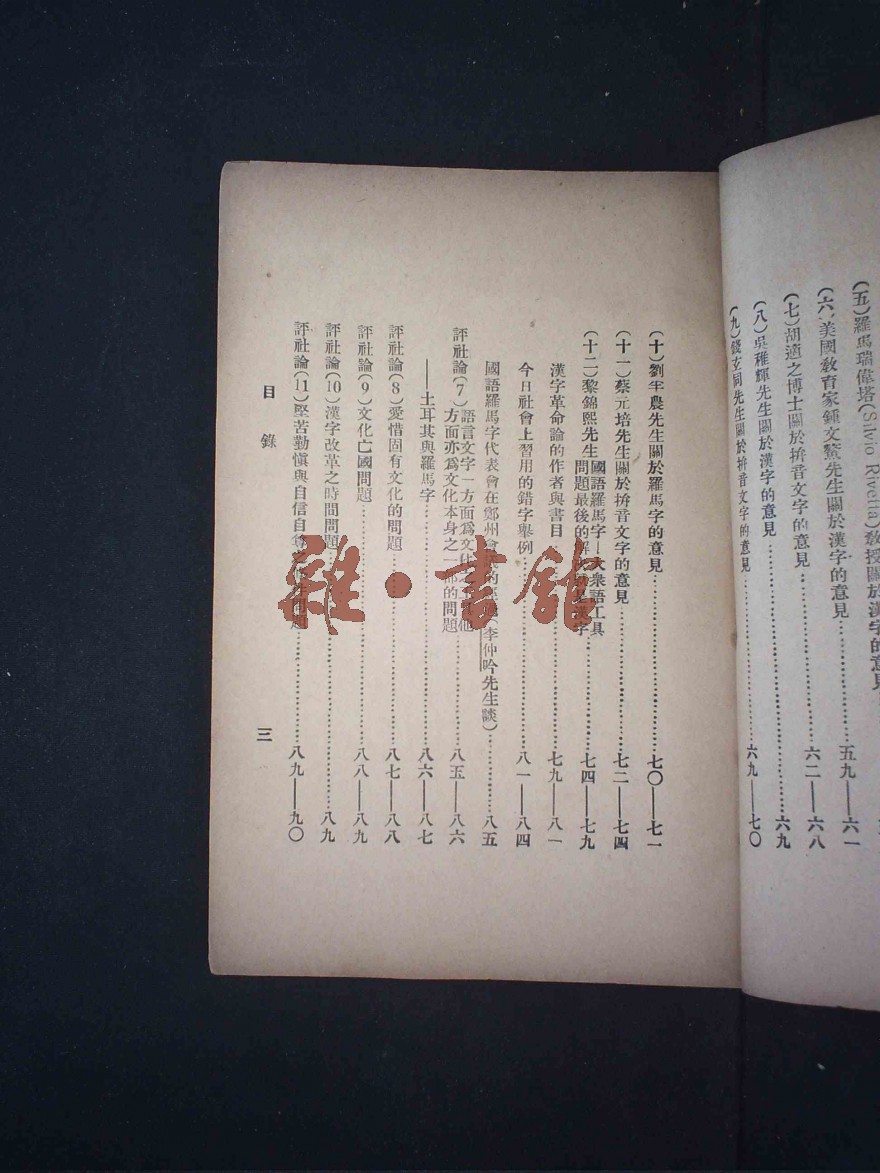 (五)羅馬瑞偉塔(Silvio Rivetta)教授關於漢字的意見
(六)美國教育家鍾文鰲先生關於漢字的意見……五九——六一
(七)胡適之博士關於拚音文字的意見……六二——六八
(八)吳稚輝先生關於漢字的意見……六九
(九)錢玄同先生關於拚音文字的意見……六九——七〇
(十)劉半農先生關於羅馬字的意見……七〇——七一
(十一)蔡元培先生關於拚音文字的意見……七二——七四
(十二)黎錦熙先生
國語羅馬字—大衆語工具
問題最後的解決 漢字……七四——七九
漢字革命論的作者與書目……七九——八一
今日社會上習用的錯字舉例……八一——八四
國語羅馬字代表會在鄭州 的 (李仲吟先生談)……八五
評社論(7)
語言文字一方面爲文化 他
方面亦爲文化本身之一部的問題……八五——八六
——土耳其與羅馬字……八六——八七
評社論(8)愛惜固有文化的問題……八七——八八
評社論(9)文化亡國問題……八八——八九
評社論(10)漢字改革之時間問題……八九
評社論(11)堅苦勤愼與自信自尊之 問題……八九——九〇
目錄
三
雜·書館